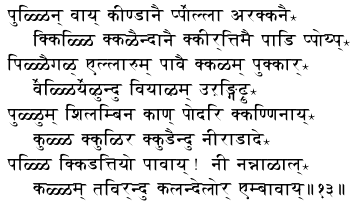 पुळ्ळिन् वाय् कीण्डानै प्पॊल्ला अरक्कनै⋆
क्किळ्ळि क्कळैन्दानै क्कीर्त्तिमै पाडि प्पोय्प्⋆
पिळ्ळैगळ् एल्लारुम् पावै क्कळम् पुक्कार्⋆
वॆळ्ळियॆऴुन्दु वियाऴम् उऱङ्गिट्रु⋆
पुळ्ळुम् शिलम्बिन काण् पोदरि क्कण्णिनाय्⋆
कुळ्ळ क्कुळिर क्कुडैन्दु नीराडादे⋆
पळ्ळि क्किडत्तियो पावाय्! नी नन्नाळाल्⋆
कळ्ळम् तविर्न्दु कलन्देलोर् एम्बावाय्॥१३॥